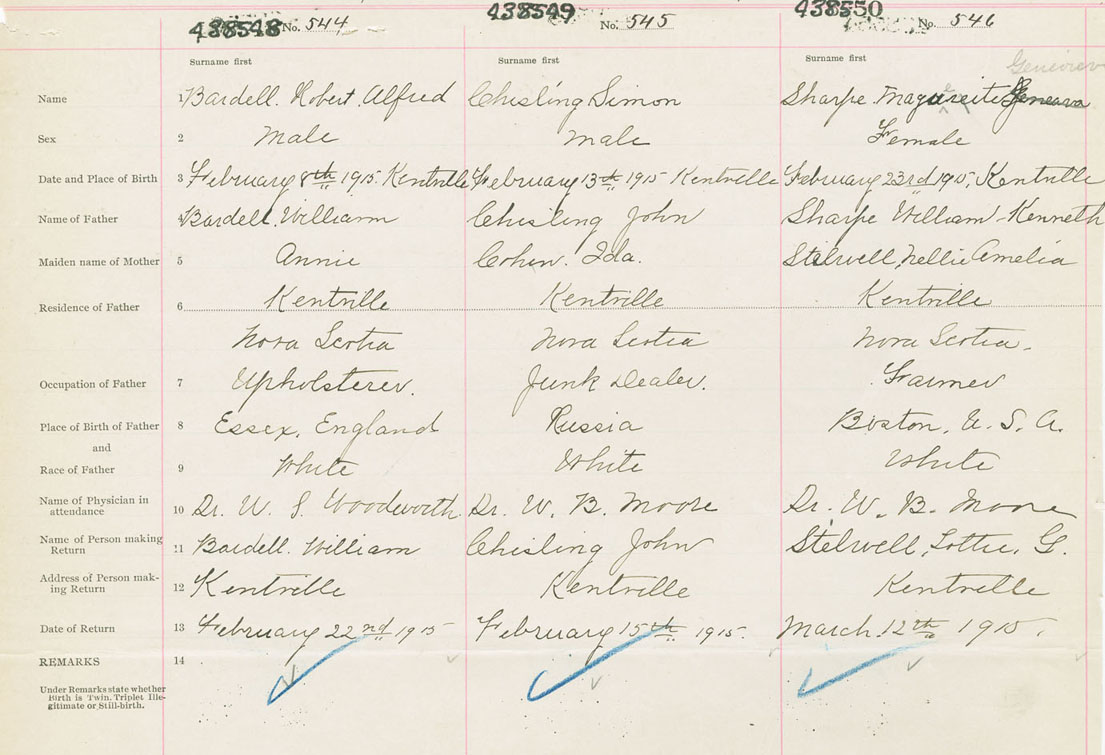 438548 No. 544 438549 No. 545 438550 No. 546
Surname first Surname first Surname first
Genevieve
Name 1 Bardell. Robert. Alfred Chisling Simon Sharpe. Magureite Geneava
Sex 2 Male Male Female
Date and Place of Birth 3 February 8th 1915. Kentville February 13th 1915 Kentville February 23rd 1915, Kentville
Name of Father 4 Bardell. William Chisling John Sharpe William-Kenneth
Maiden name of Mother 5 Annie Cohen. Ida. Stelwell, Nellie Amelia
Residence of Father 6 Kentville Kentville Kentville
Nova Scotia Nova Scotia Nova Scotia.
Occupation of Father 7 Upholsterer. Junk Dealer. Farmer
Place of Birth of Father 8 Essex, England Russia Boston, U. S. A.
and
Race of Father 9 White White White
Name of Physician in
attendance 10 Dr. W. S. Woodworth. Dr. W. B. Moore Dr. W. B. Moore
Name of Person making
Return 11 Bardell. William Chisling John Stelwell, Lottie, G.
Address of Person mak-
ing Return 12 Kentville Kentville Kentville
Date of Return 13 February 22nd 1915 February 15th 1915. March 12th 1915.
REMARKS 14
Under Remarks state whether
Birth is Twin, Triplet Ille-
gitimate or Still-birth.